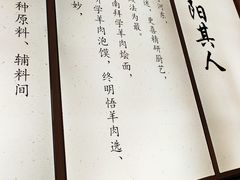 阳其人
河东，
更喜精研厨艺，
法为最。
南拜学羊肉烩面，
学羊肉泡馍，终明悟羊肉选、
妙，
种原料、辅料间